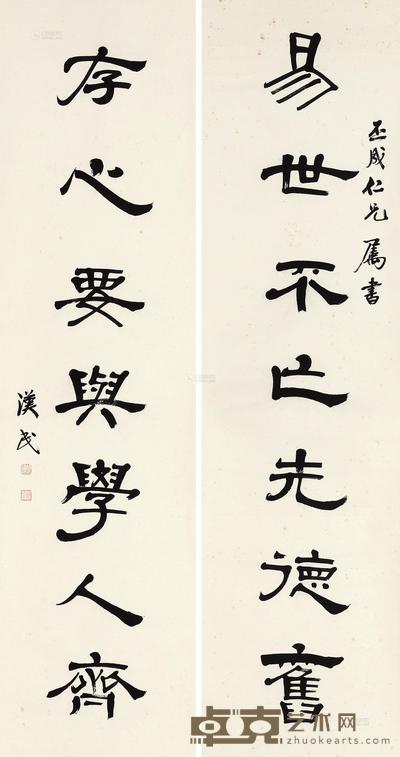 丕成仁兄屬書
易世不亡先德舊
存心要與學人齊
漢民
卓克艺术网
zhuokearts.com